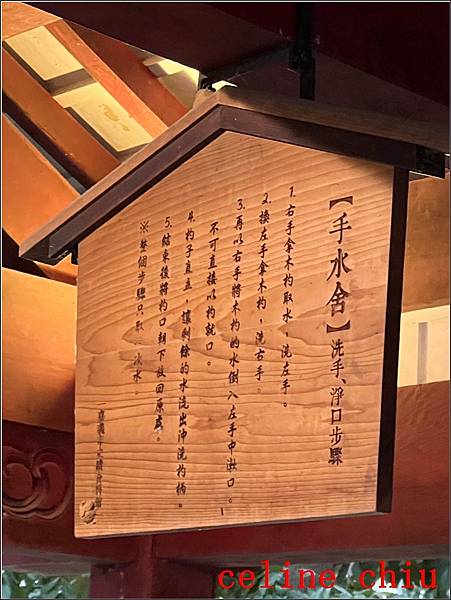 【手水舍】洗手、淨口步驟
1.右手拿木杓取水，洗左手。
2.換左手拿木杓，洗右手。
3.再以右手將木杓的水倒入左手中漱口。
不可直接以杓就口。
4.杓子直立，讓剩餘的水流出沖洗杓柄。
5.結束後將杓口朝下放回原處。
※整個步驟只取一次水。
celine chiu